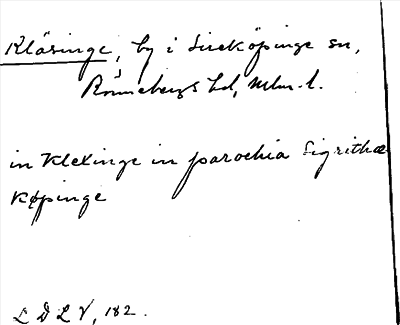 Kläsinge, by i Sireköpinge sn,
Rönnebergs hd, Mlm. l.
in Klexinge in parochia Sigrithæ
Köpinge
L D L V, 182.